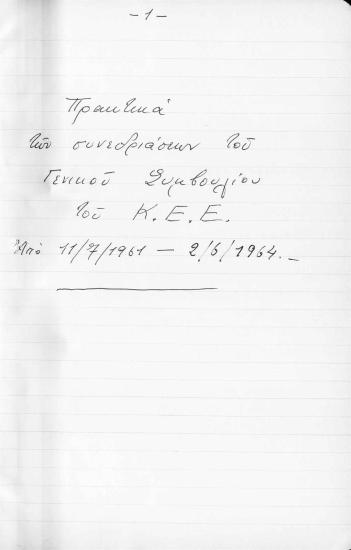 -1-
Πρακτικά
τῶν συνεδριάσεων τοῦ
Γενικοῦ Συμβουλίου
τοῦ Κ.Ε.Ε.
Ἀπό 11/7/1961 — 2/6/1964.-